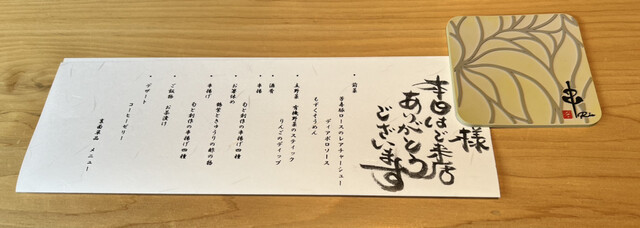 様
本日はご来店
ありがとう
ございます
・前菜
芳寿豚ロースのレアチャーシュー
ディアボロソース
もずくそうめん
・生野菜
有機野菜のスティック
りんごのディップ
・酒肴
・串揚
むど創作の串揚げ四種
・お箸休め
鶴紫ときゅうりの酢の物
・串揚げ
むど創作の串揚げ四種
・ご飯物
お茶漬け
・デザート
コーヒーゼリー
裏面単品 メニュー
串